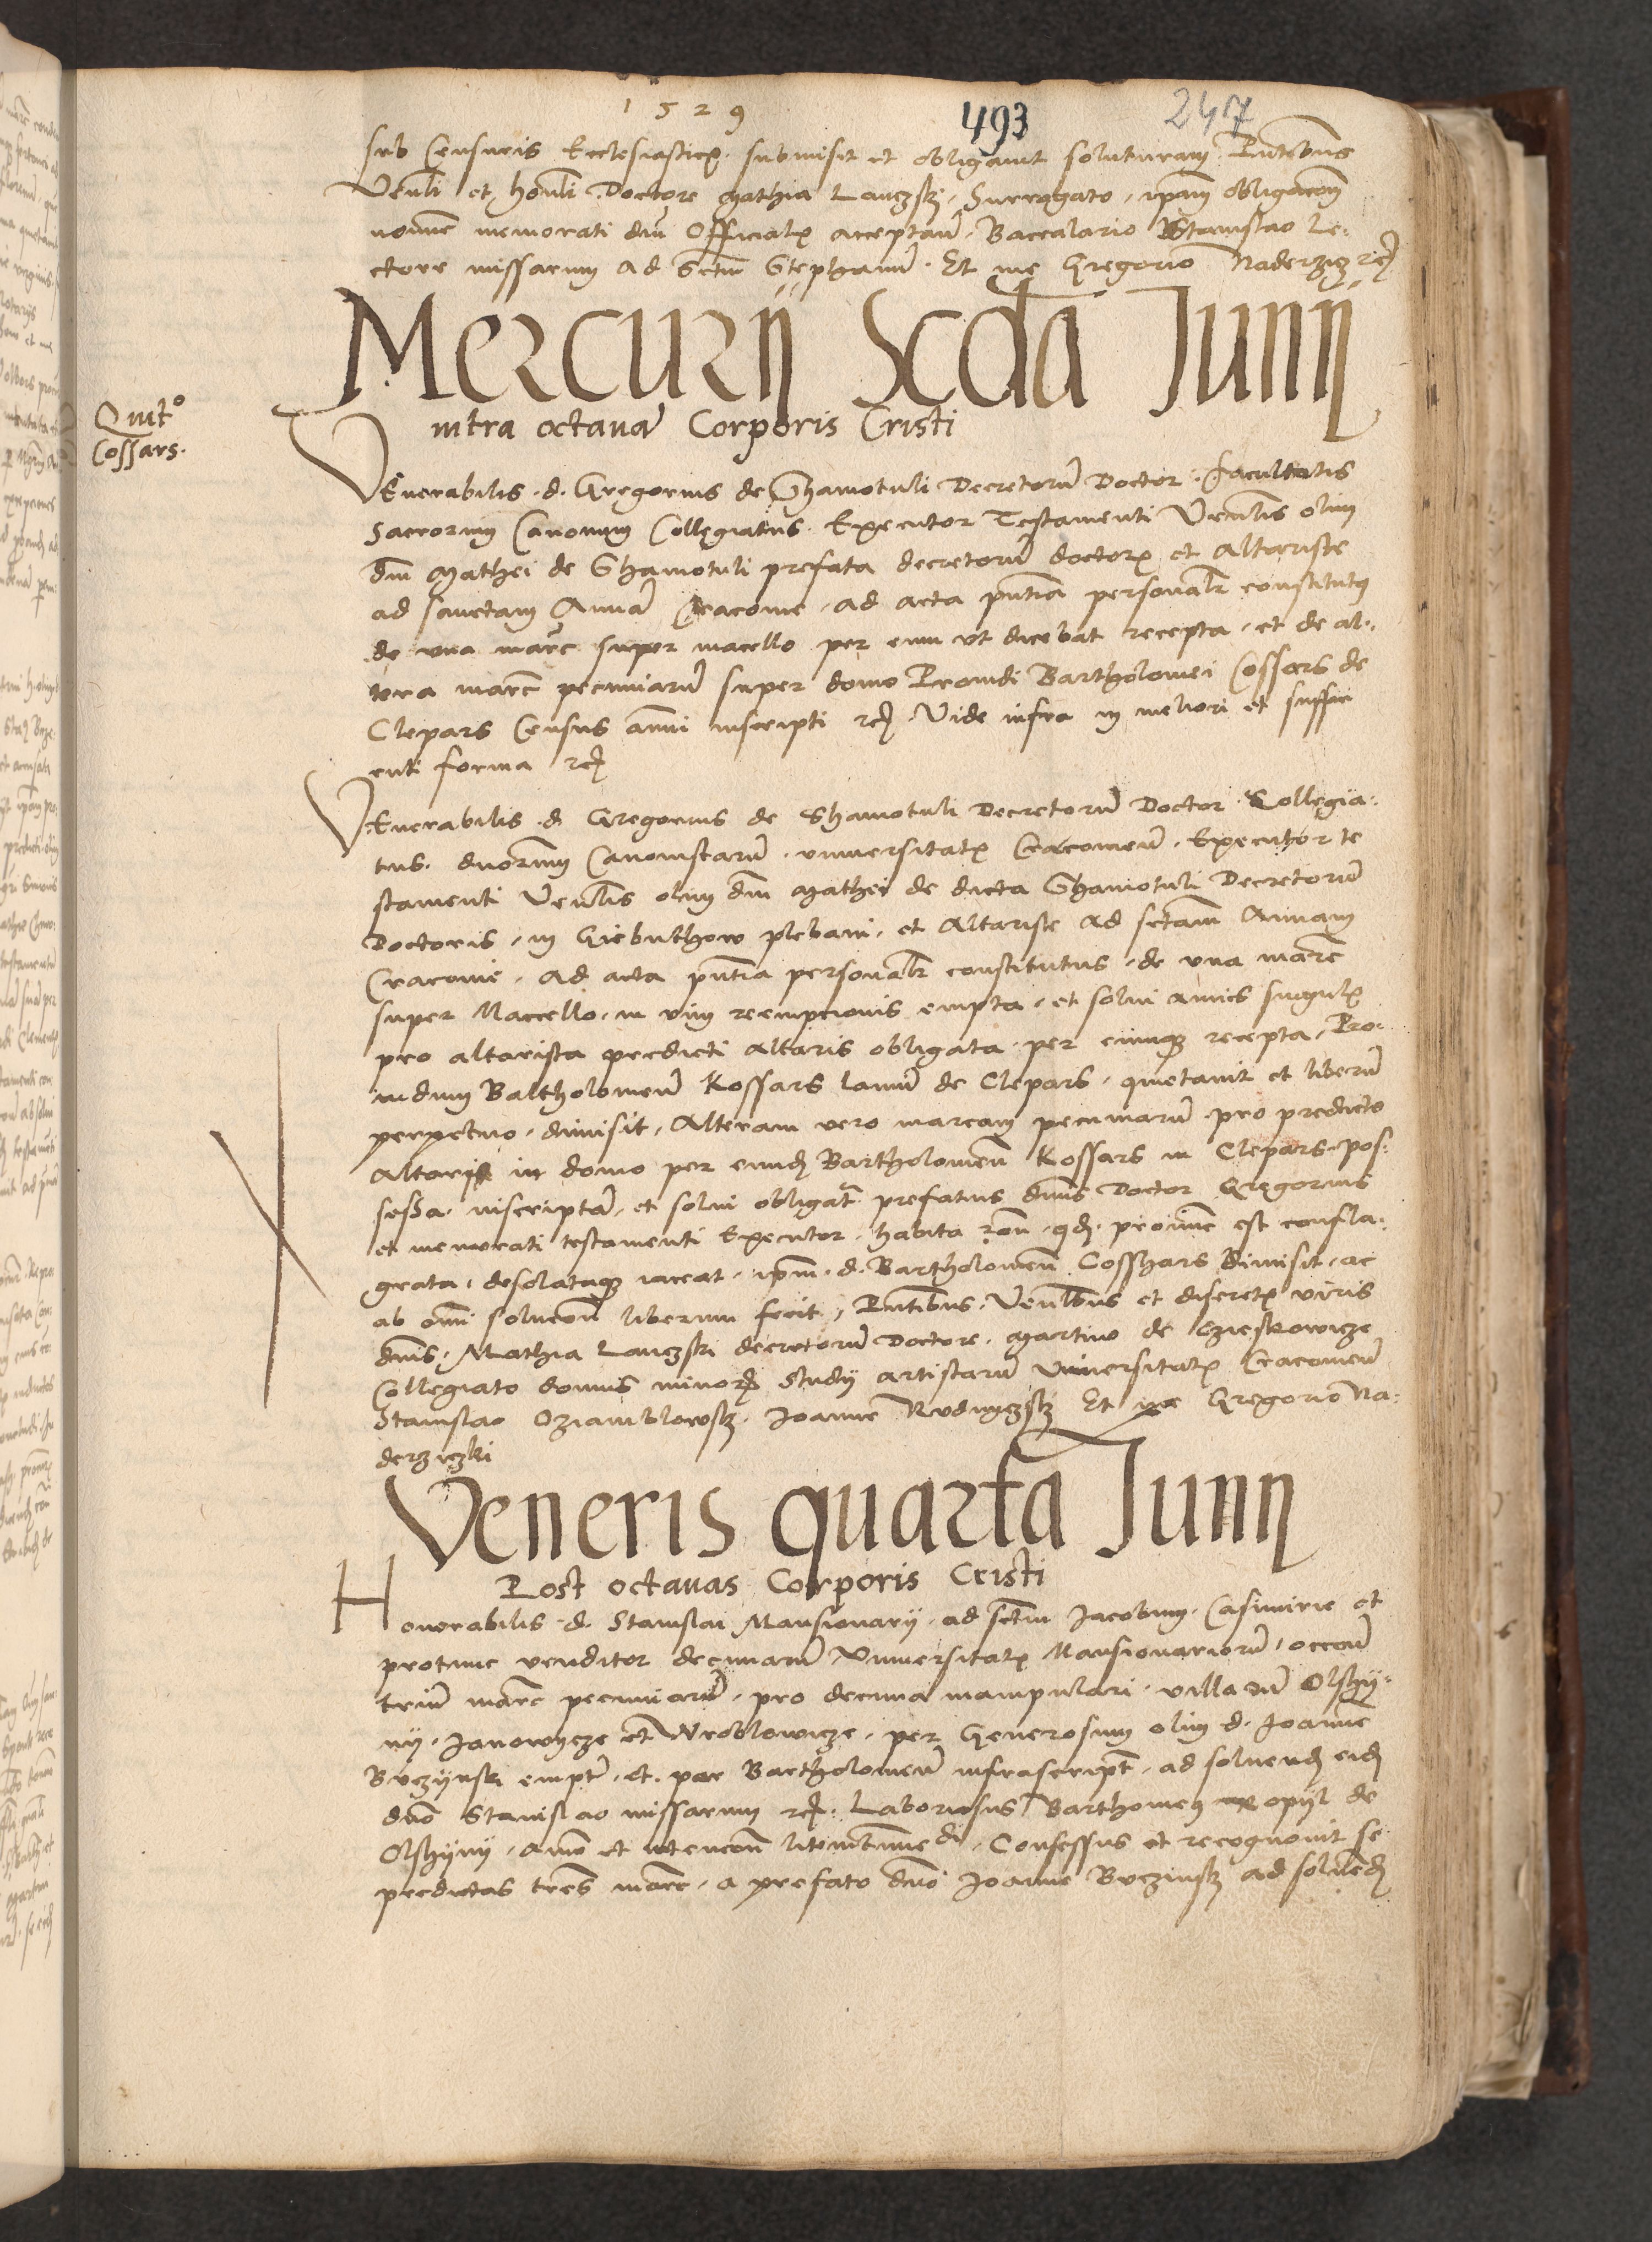 1529
493
247
sub Censuris Ecclesiasticis submisit et obligavit soluturam. Pntibus
Venli et honli Doctore Mathia Lanczski, Surrogato, ipam obligacom
nomine memorati dni Officialis acceptan. Baccalario Stanislao Le-
ctore missarum ad Sctum Stephanu. Et me Gregorio Naderzicz rc
Mercurij Scda Junij
intra octavas Corporis Cristi
Quit°
Cossars.
VEnerabilis d. Gregorius de Shamotuli Decretoru Doctor facultatis
Sacrorum Canonum Collegiatus Executor Testamenti Venlis olim
dni Mathei de Shamotuli prefata decretoru doctoris et Altariste
ad sanctam Anna Cracovie, ad acta pntia personalr constitutus
de una marc super macello per eum ut dicebat recepta, et de al-
tera marc pecuniaru super domo Providi Bartholomei Cossars de
Clepars Census annui inscripti rc Vide infra in meliori et suffici
enti forma rc
VEnerabilis d. Gregorius de Shamotuli Decretoru Doctor Collegia-
tus. duorum Canonistaru. universitatis Cracovien. Executor te
stamenti Venlis olim dni Mathei de dicta Shamotuli Decretoru
Doctoris, in Giebulthow plebani, et Altariste ad sctam Annam
Cracovie, ad acta pntia personalr constitutus, de una marc
super Maccello, in vim reempcionis empta, et solvi annis singulis
pro altarista predicti altaris obligata per eumque recepta, Pro-
vidum Baltholomeu Kossars laniu de Clepars, quietavit et liberu
perpetuo dimisit, Alteram vero marcam pecuniaru pro predicto
Altari in domo per eund Bartholomeu Kossars in Clepars pos-
sessa inscripta, et solvi obligat prefatus dnus Doctor Gregorius
et memorati testamenti Executor, habita ron, qd pronunc est confla-
grata, desolataque iaceat, ipm d. Bartholomeu Cosshars dimisit, ac
ab omi solucon liberum fecit, Pntibus, Venlibus et discretis viris
dnis, Mathia Lanczski decretoru Doctore, Martino de
Collegiato domus minoris Studij artistaru Universitatis Cracovien
Stanislao Joanne Et me Gregorio Na-
derziczki
Veneris quarta Junij
Post octavas Corporis Cristi
Honorabilis d. Stanislai Mansionarij, ad sctm Jacobum Casimirie et
protunc venditor decimaru Universitatis Mansionarioru, occon
trium marc pecuniaru, pro decima manipulari, villaru Olshy-
ny, Janowycze et Wroblowicze, per Generosum olim d. Joanne
Buczynski empt, et per Bartholomeu infrascript, ad solvend eid
dno Stanislao missarum rc. Laboriosus Barthomeus opijl de
Olshyny, Confessus et recognovit se
predictas tres marc, a prefato dno Joanne Buczinski ad solvend